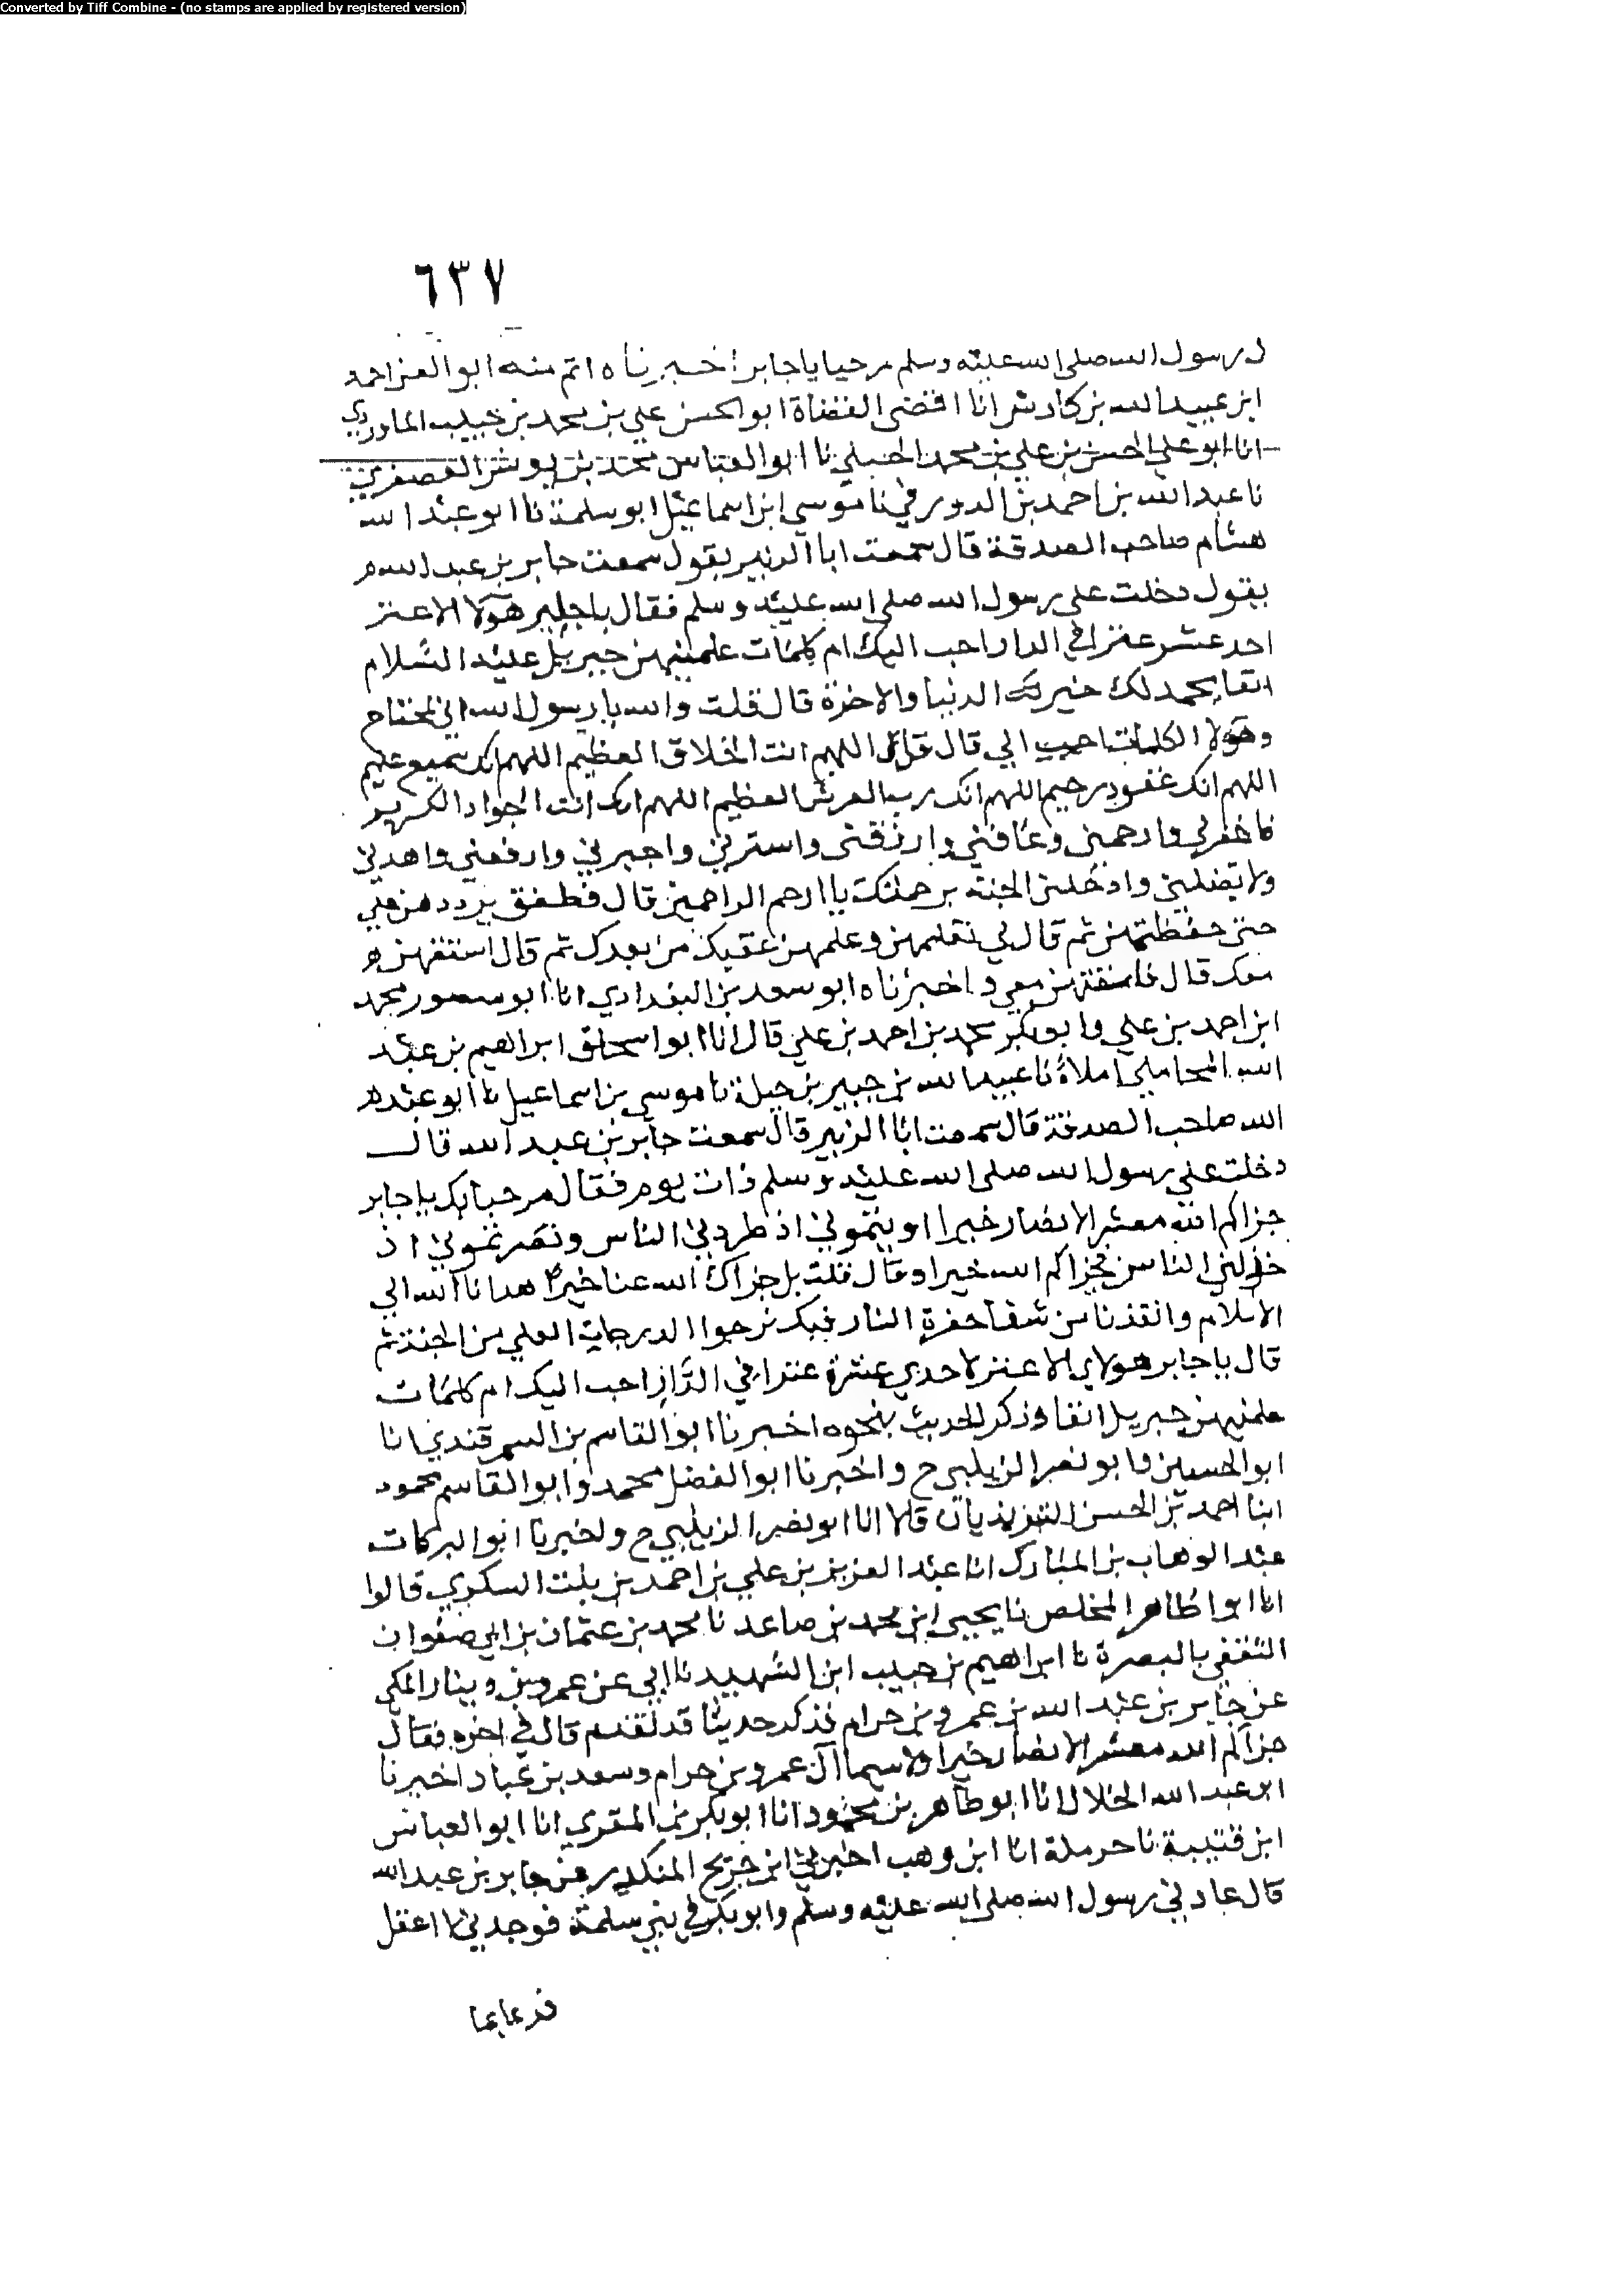 Converted by Tiff Combine - (no stamps are applied by registered version)
٦٣٧
ل رسول الله صلى الله عليه وسلم مرحبا يا جابر اخبرناه اتم منه ابو العز احمد
ابن عبيد الله بن كادش انا اقضى القضاة ابو الحسن علي بن محمد بن حبيب الماوردي
انا ابو علي الحسن بن علي بن محمد الحنبلي نا ابو العباس محمد بن يونس العصفري
نا عبد الله بن احمد بن الدورقي نا موسى ابن اسماعيل ابو سلمة نا ابو عبد الله
هشام صاحب الصدقة قال سمعت ابا الزبير يقول سمعت جابر بن عبد الله
يقول دخلت على رسول الله صلى الله عليه وسلم فقال يا جابر هولا الاعنز
احد عشر عنزا في الدار احب اليك ام كلمات علمنيهن جبريل عليه السلام
انفا يجمع لك خير الدنيا والاخرة قال قلت والله يا رسول الله اني لمحتاج
وهولا الكلمات احب الي قال قل اللهم انت الخلاق العظيم اللهم انك سميع عليم
اللهم انك غفور رحيم اللهم انك رب العرش العظيم اللهم انك انت الجواد الكريم
فاغفر لي وارحمني وعافني وارزقني واسترني واجبرني وارفعني واهدني
ولا تضلني وادخلني الجنة برحمتك يا ارحم الراحمين قال فطفق يرددهن علي
حتى حفظتهن ثم قال لي تعلمهن وعلمهن عقبك من بعدك ثم قال استقهن
معك قال فاستقتهن معي واخبرناه ابو سعد بن البغدادي انا ابو منصور محمد
ابن احمد بن علي وابو بكر محمد بن احمد بن علي قال انا ابو اسحاق ابراهيم بن عبد
الله المحاملي املاء نا عبيد الله بن جبير بن جبلة نا موسى بن اسماعيل نا ابو عبد
الله صاحب الصدقة قال سمعت ابا الزبير قال سمعت جابر بن عبد الله قال
دخلت على رسول الله صلى الله عليه وسلم ذات يوم فقال مرحبا بك يا جابر
جزاكم الله معشر الانصار خيرا اويتموني اذ طردني الناس ونصرتموني اذ
خذلني الناس فجزاكم الله خيرا وقال قلت بل جزاك الله عنا خيرا هدانا الله الى
الاسلام وانقذنا من شفا حفرة النار فبك نرجوا الدرجات العلى من الجنة ثم
قال يا جابر هولاي الاعنز لاحدي عشرة عنزا في الدار احب اليك ام كلمات
علمنيهن جبريل انفا وذكر الحديث بنحوه اخبرنا ابو القاسم بن السمرقندي انا
ابو الحسين وابو نصر الزينبي ح واخبرنا ابو الفضل محمد وابو القاسم محمود
ابنا احمد بن الحسن التبريذيان قالا انا ابو نصر الزينبي ح واخبرنا ابو البركات
عبد الوهاب بن المبارك انا عبد العزيز بن علي بن احمد بن بلت السكري قالوا
انا ابو طاهر المخلص نا يحيى ابن محمد بن صاعد نا محمد بن عثمان بن ابي صفوان
الثقفي بالبصرة نا ابراهيم بن حبيب ابن الشهيد نا ابي عن عمرو بن دينار المكي
عن جابر بن عبد الله بن عمرو بن حرام فذكر حديثا قد تقدم قال في اخره فقال
جزاكم الله معشر الانصار خيرا ولا سيما آل عمرو بن حرام وسعد بن عباد اخبرنا
ابو عبد الله الخلال انا ابو طاهر بن محمود انا ابو بكر بن المقري انا ابو العباس
ابن قتيبة نا حرملة انا ابن وهب اخبرني ابن جريج المنكدر عن جابر بن عبد الله
قال عادني رسول الله صلى الله عليه وسلم وابو بكر في بني سلمة فوجدني لا اعقل
فدعا بما